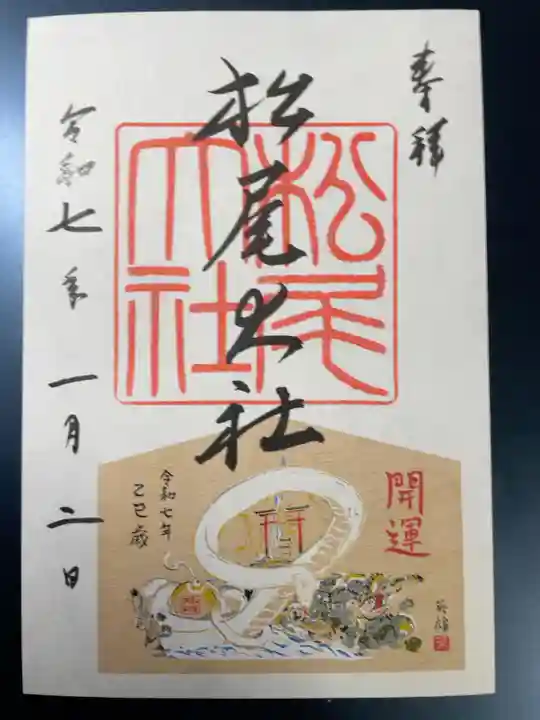 奉拝
松尾大社
松尾大社
令和七年一月二日
開運
令和七年
乙巳歳